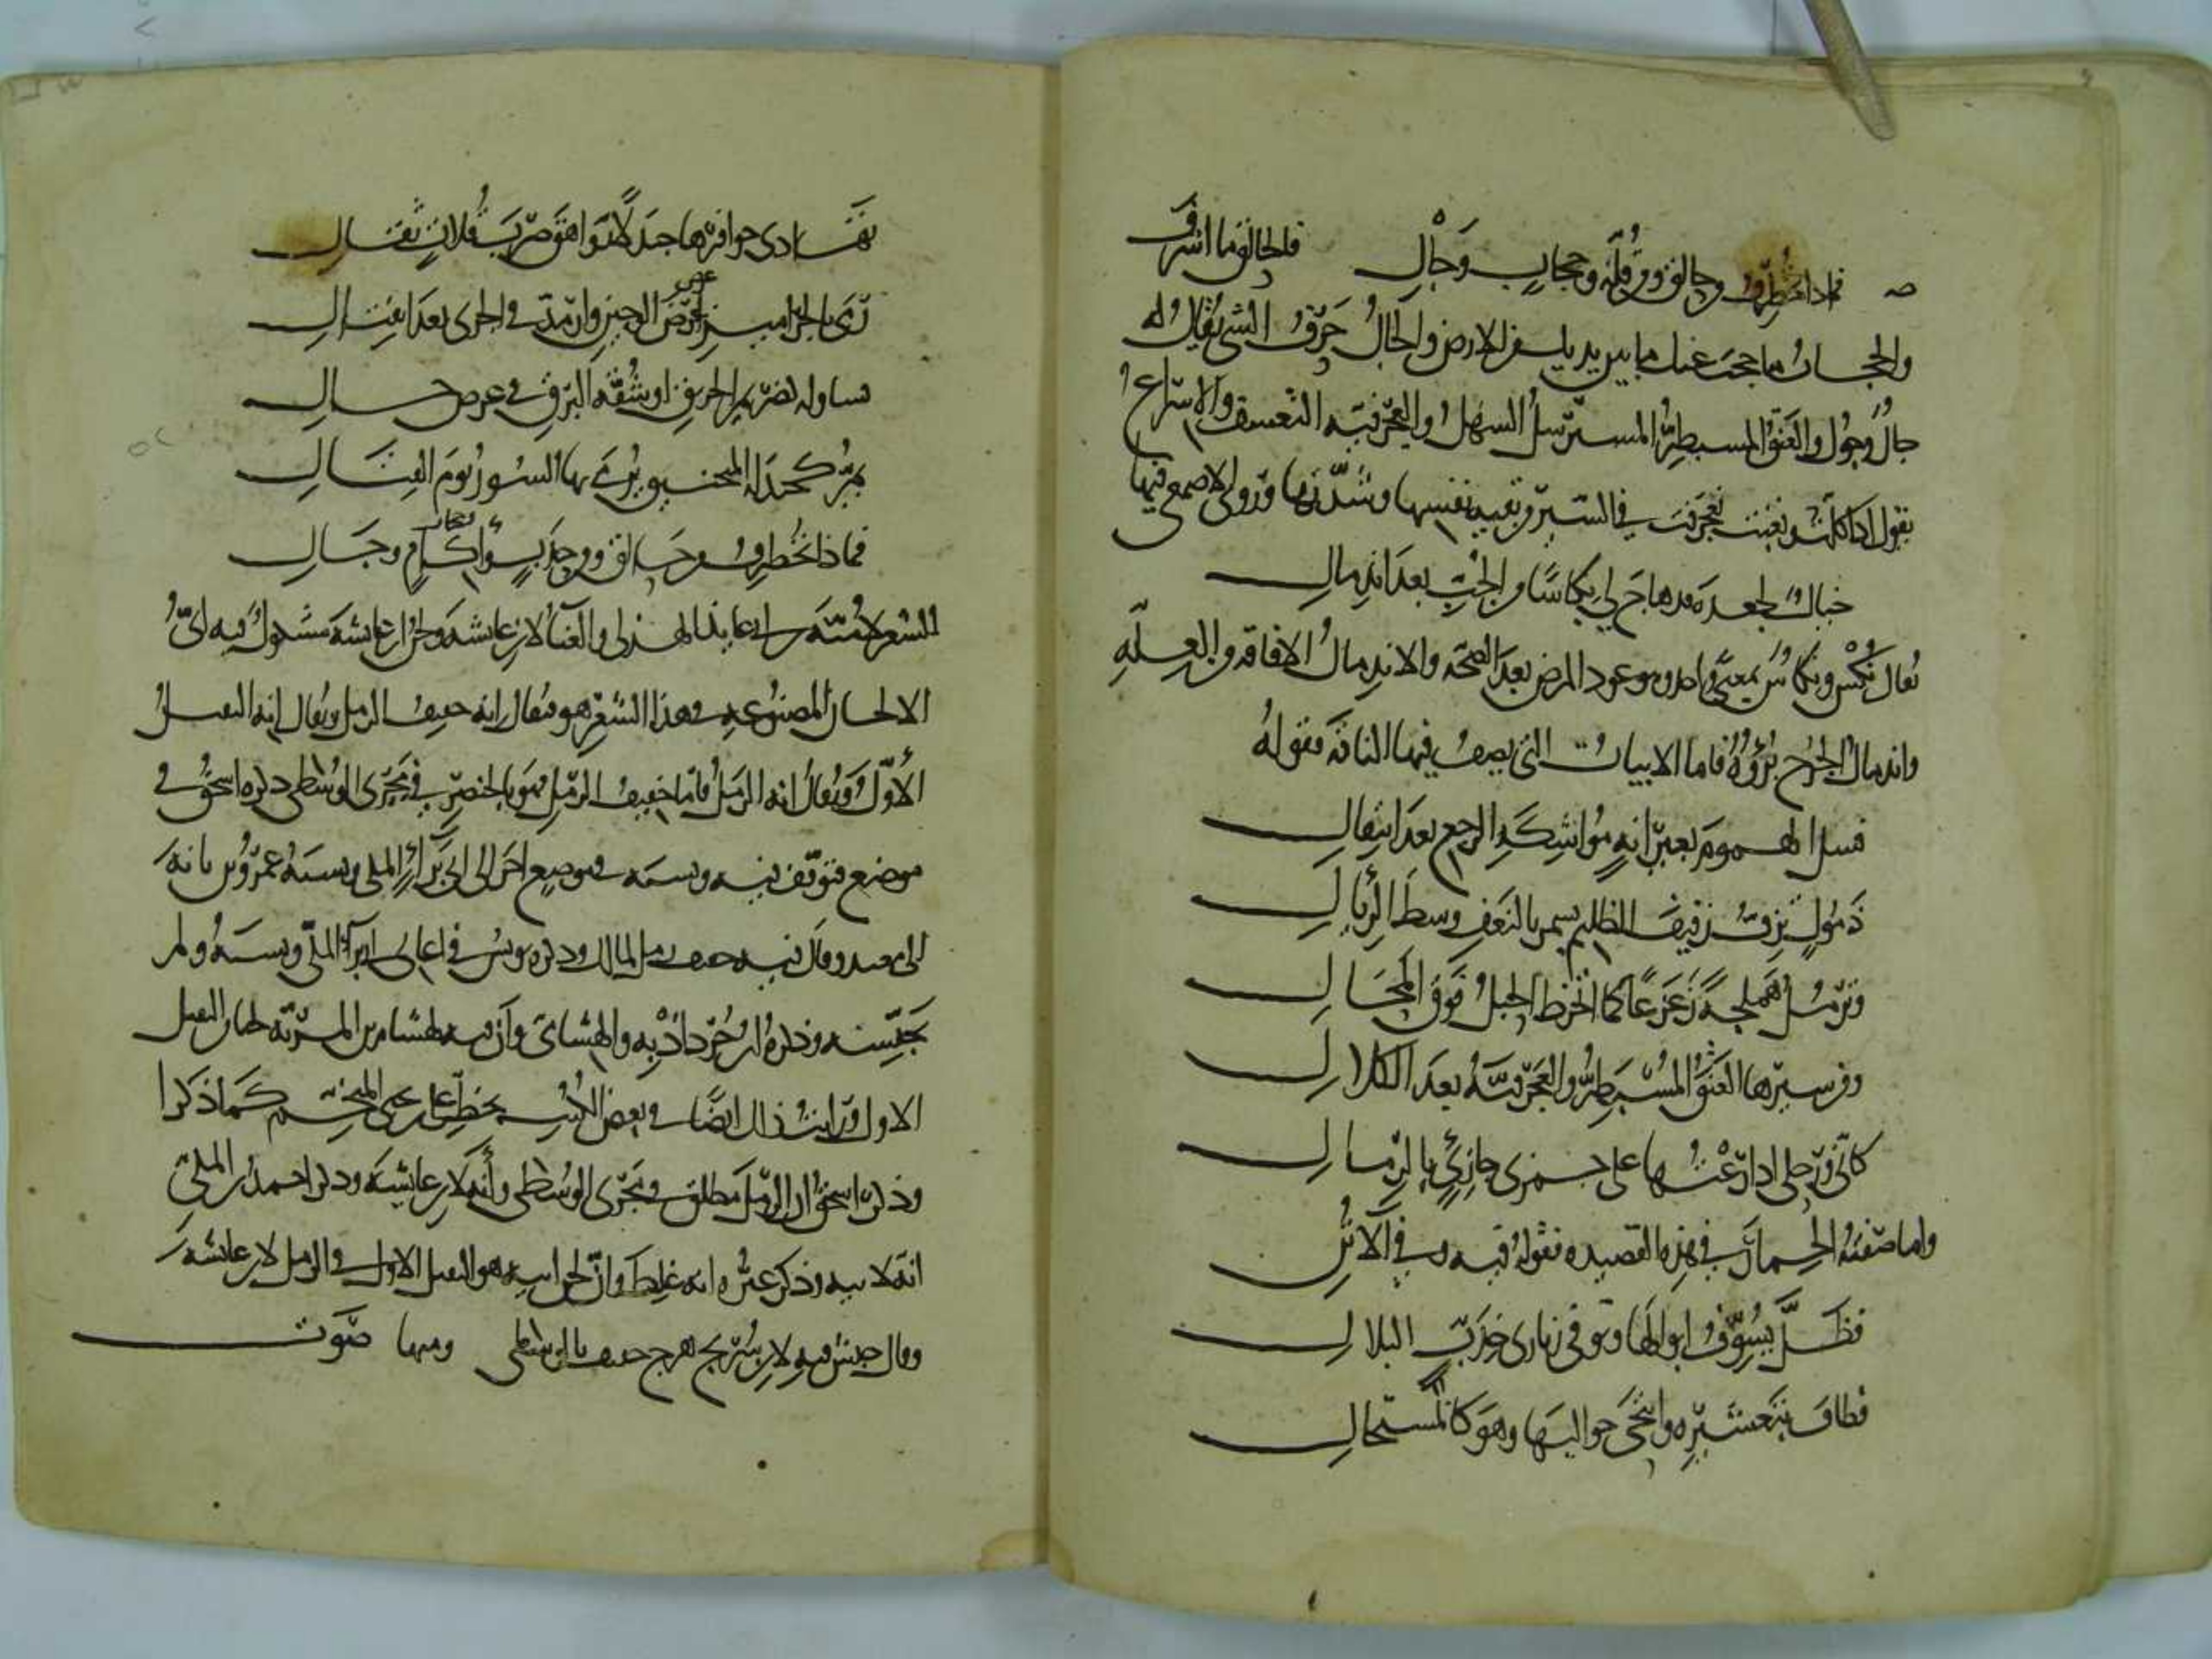 فماذا تخطرف من حالق ومن قلة وحجاب وجال فالحالق ما اشرف
والحجاب ما حجب عنك ما بين يديك من الارض والجال حرف الشي يقال له
جال وجول والعنق المسبطر المسترسل السهل والعجرفية التعسف والاسراع
يقول اذا كلت وتعبت تعجرفت في السير من بقية نفسها وشدتها وروى الاصمعي فيها
خيال لجعدة قد هاج لي نكاسا من الحب بعد اندمال
يقال نكس ونكاس بمعنى واحد وهو عود المرض بعد الصحة والاندمال الافاقة من العلة
واندمال الجرح برؤه فاما الابيات التي يصف فيها الناقة فقوله
فسل الهموم بعيرانة مواشكة الرجع بعد انتقال
ذمول تزف زفيف الظليم يسمر بالنعف وسط الريال
وترمد هملجة زعزعا كما انخرط الحبل فوق المحال
ومن سيرها العنق المسبطر والعجرفية بعد الكلال
كاني ورحلي اذا رعتها على جمزى جازئ بالرمال
واما صفته الحمار في هذه القصيدة فقوله فيه وفي الاتن
فظل يسوف ابوالها ويوفي زيازى حدب التلال
فطاف بتعشيره وانتحى جواليها وهو كالمستجال
تهادى حوافرها جندلا زواهق ضرب قلات بقال
رمى بالجراميز عرض الوجين وارمد في الجرى بعد انفتال
بشاو له كضريم الحريق او شقة البرق في عرض خال
يمر كجندلة المنجنيق يرمى بها السور يوم القتال
فماذا تخطرف من حالق ومن حدب واكام وجال
الشعر لامية بن ابي عايذ الهذلي والغنا لابن عايشة ولحن ابن عايشة مشكوك فيه اي
الالحان المصنوعة في هذا الشعر هو فيقال انه خفيف الرمل ويقال انه الثقيل
الاول ويقال انه الرمل فاما خفيف الرمل فهو بالخنصر في مجرى الوسطى ذكره اسحق في
موضع فتوقف فيه ونسبه في موضع اخر الى ابن ابي يزن المكي ونسبه عمرو بن بانة
الى معبد وقال فيه خفيف رمل لمالك وذكر يونس في اغاني ابن ابي يزن المكي ونسبه ولم
يجنسه وذكر ابن خرداذبه والهشامي وان فيه لهشام بن المرية لحنا من الثقيل
الاول ورايت ذلك ايضا في بعض الكتب بخط علي بن يحيى المنجم كما ذكرا
وذكر اسحق ان الرمل مطلق في مجرى الوسطى وانه لابن عايشة وذكر احمد بن المكي
انه لابيه وذكر غيره انه غلط وان لحن ابيه هو الثقيل الاول والرمل لابن عايشة
وقال حبش فيه لابن سريج هزج خفيف بالوسطى ومنها صوت